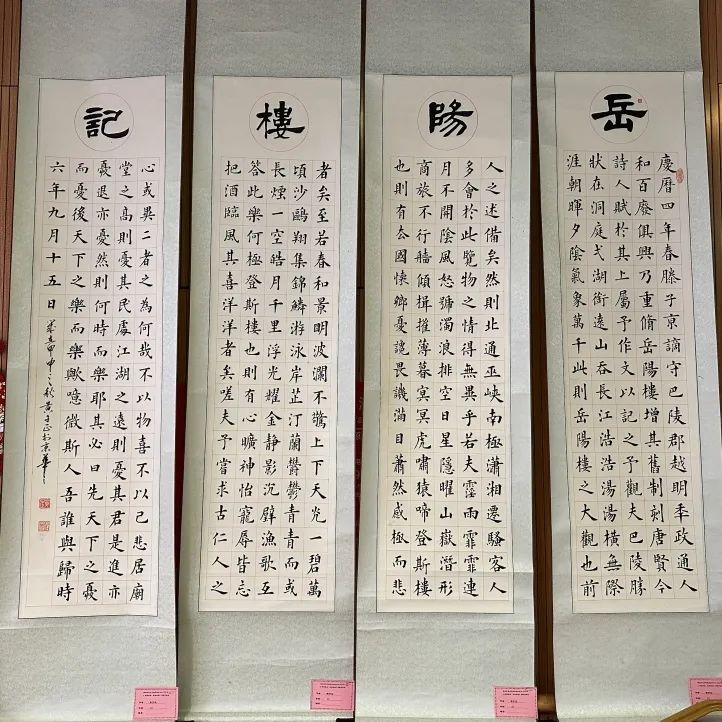 岳
慶曆四年春滕子京謫守巴陵郡越明秊政通人
和百廢俱興乃重脩岳陽樓增其舊制刻唐賢今
詩人賦於其上屬予作文以記之予觀夫巴陵勝
狀在洞庭弌湖銜遠山吞長江浩浩湯湯橫無際
涯朝暉夕陰氣象萬千此則岳陽樓之大觀也前
陽
人之述備矣然則北通巫峽南極瀟湘遷騷客人
多會於此覽物之情得無異乎若夫霪雨霏霏連
月不開陰風怒號濁浪排空日星隱曜山嶽潛形
商旅不行檣傾楫摧薄暮冥冥虎嘯猿啼登斯樓
也則有去國懷鄉憂讒畏譏滿目蕭然感極而悲
樓
者矣至若春和景明波瀾不驚上下天光一碧萬
頃沙鷗翔集錦鱗游泳岸芷汀蘭鬱鬱青青而或
長煙一空皓月千里浮光耀金静影沉璧漁歌互
答此樂何極登斯樓也則有心曠神怡寵辱皆忘
把酒臨風其喜洋洋者矣嗟夫予嘗求古仁人之
記
心或異二者之為何哉不以物喜不以己悲居廟
堂之高則憂其民處江湖之遠則憂其君是進亦
憂退亦憂然則何時而樂耶其必曰先天下之憂
而憂後天下之樂而樂歟噫微斯人吾誰與歸時
六年九月十五日 甲申之秋黃於京華